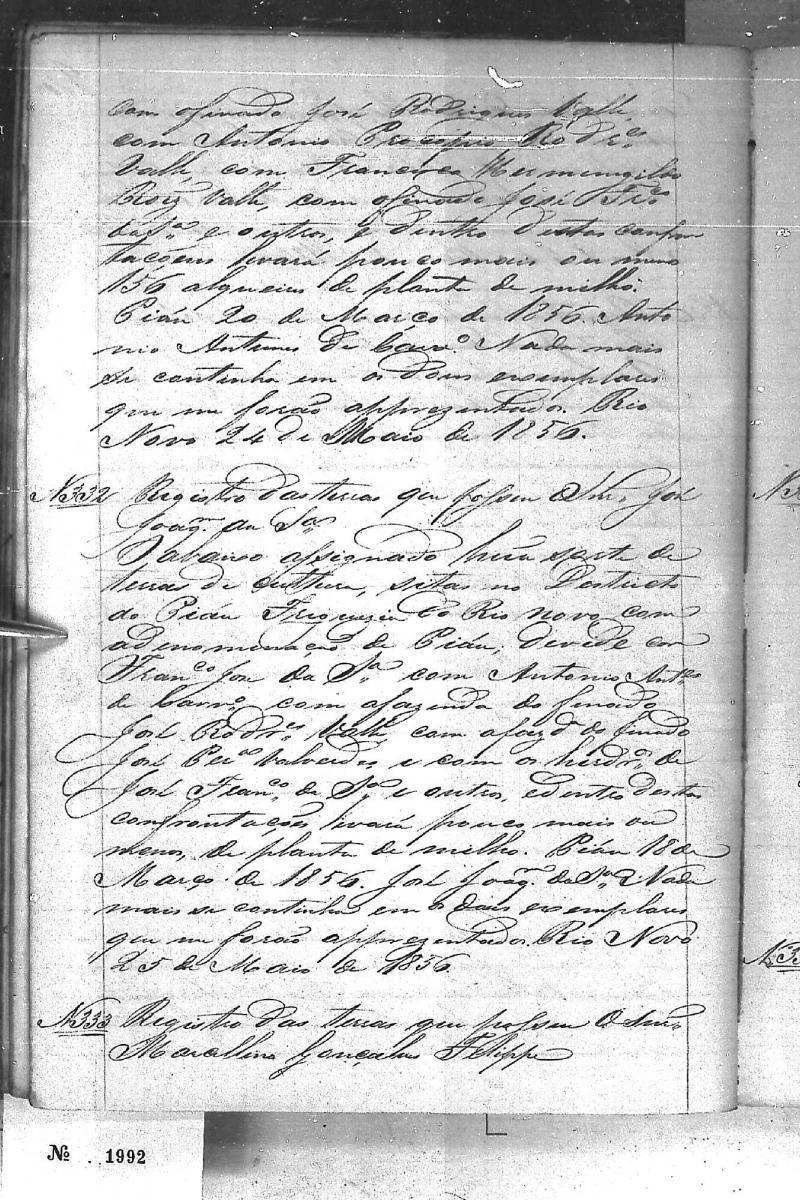 com ofinado José Rodrigues Valle,
com Antonio Procopio Rodr.es
Valle, com Francisco Hermenegildo
Roiz Valle, com ofinado José Fr.co
da S.a e outros, e dentro destas confron
taçoens levará pouco mais ou meno
156 alqueires de planta de milho.
Piáu 20 de Março de 1856. Anto
nio Antunes de Carv.o Nada mais
se continha em os dous exemplares
que me forão apprezentados. Rio
Novo 24 de Maio de 1856.
N 332 Registro das terras que possue O Snr. José
Joaq.m da S.a
O abaixo assignado huma sorte de
terras de cultura, sitas no Destricto
do Piáu Freguezia do Rio novo com
adenominação de Piáu, devide com
Fran.co José da S.a com Antonio Ant.es
de Carv.o com afazenda do finado
José Rodr.es Valle, com afazd.a do finado
José Per.a Valverde, e com os herdr.os de
José Fran.co da S.a e outros, edentro destas
confrontações, levará pouco mais ou
menos, de planta de milho. Piáu 18 de
Março de 1856. José Joaq.m da S.a Nada
mais se continha em os dois exemplares
que me forão apprezentados. Rio Novo
25 de Maio de 1856.
N 333 Registro das terras que possue O Snr.
Marcellino Gonçalves Felippe
No. 1992